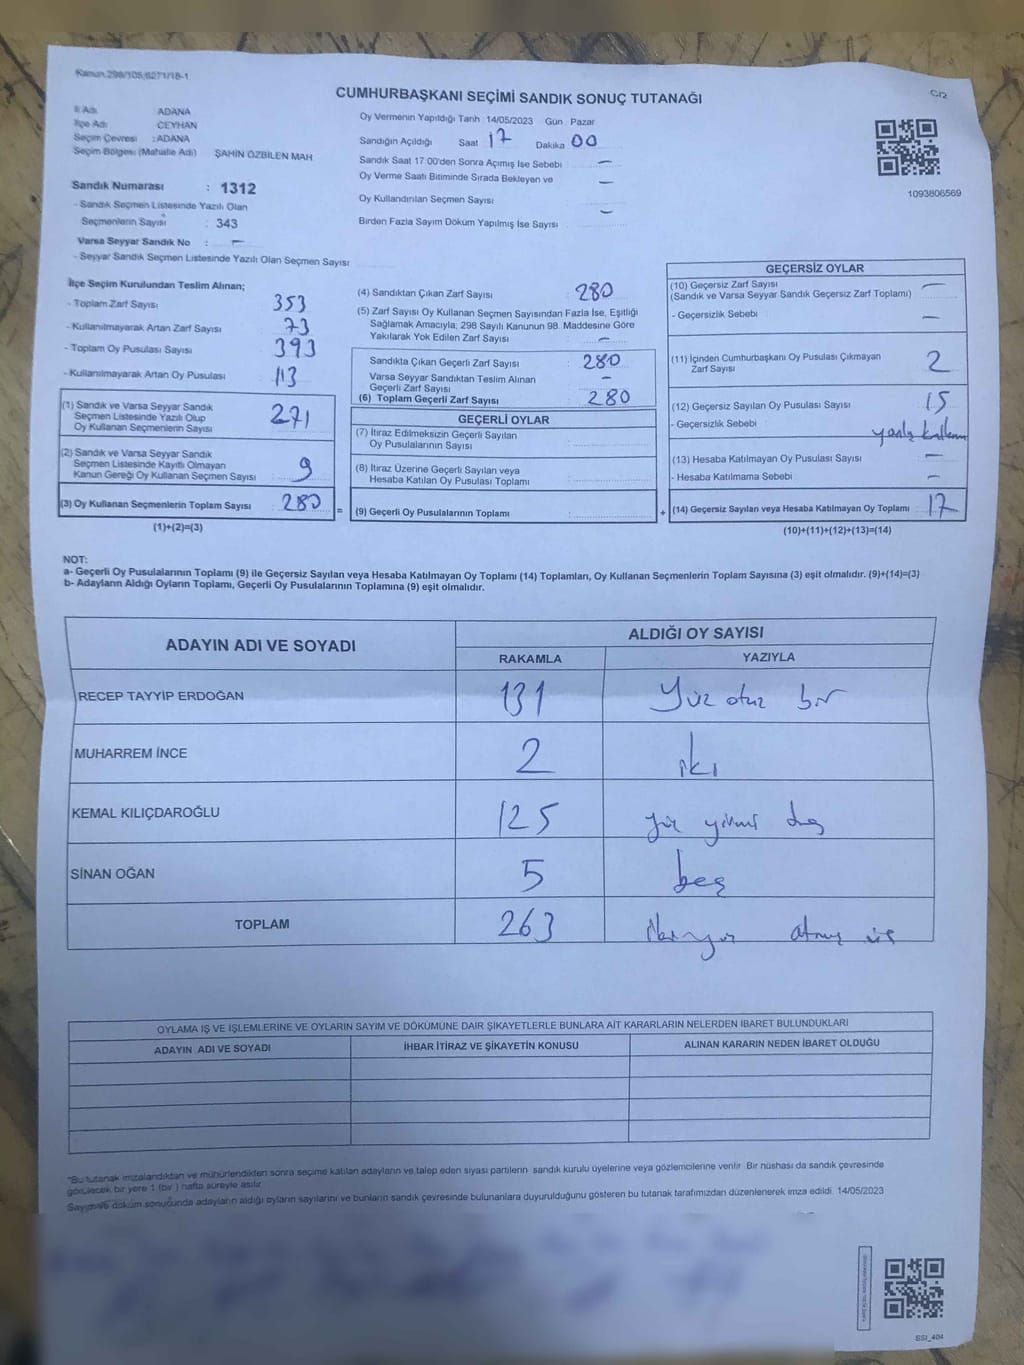 Kanun 298/105,6271/18-1
CUMHURBAŞKANI SEÇİMİ SANDIK SONUÇ TUTANAĞI
C/2
İl Adı ADANA
İlçe Adı CEYHAN
Seçim Çevresi : ADANA
Seçim Bölgesi (Mahalle Adı) ŞAHİN ÖZBİLEN MAH
Sandık Numarası : 1312
- Sandık Seçmen Listesinde Yazılı Olan
Seçmenlerin Sayısı : 343
Varsa Seyyar Sandık No : –
- Seyyar Sandık Seçmen Listesinde Yazılı Olan Seçmen Sayısı
Oy Vermenin Yapıldığı Tarih : 14/05/2023 Gün Pazar
Sandığın Açıldığı Saat 17 Dakika 00
Sandık Saat 17:00'den Sonra Açımış İse Sebebi –
Oy Verme Saati Bitiminde Sırada Bekleyen ve –
Oy Kullandırılan Seçmen Sayısı
Birden Fazla Sayım Döküm Yapılmış İse Sayısı –
1093806569
İlçe Seçim Kurulundan Teslim Alınan;
- Toplam Zarf Sayısı 353
- Kullanılmayarak Artan Zarf Sayısı 73
- Toplam Oy Pusulası Sayısı 393
- Kullanılmayarak Artan Oy Pusulası 113
(1) Sandık ve Varsa Seyyar Sandık
Seçmen Listesinde Yazılı Olup
Oy Kullanan Seçmenlerin Sayısı 271
(2) Sandık ve Varsa Seyyar Sandık
Seçmen Listesinde Kayıtlı Olmayan
Kanun Gereği Oy Kullanan Seçmen Sayısı 9
(3) Oy Kullanan Seçmenlerin Toplam Sayısı 280
(1)+(2)=(3)
=
(4) Sandıktan Çıkan Zarf Sayısı : 280
(5) Zarf Sayısı Oy Kullanan Seçmen Sayısından Fazla İse, Eşitliği
Sağlamak Amacıyla; 298 Sayılı Kanunun 98. Maddesine Göre
Yakılarak Yok Edilen Zarf Sayısı –
Sandıkta Çıkan Geçerli Zarf Sayısı : 280
Varsa Seyyar Sandıktan Teslim Alınan –
Geçerli Zarf Sayısı
(6) Toplam Geçerli Zarf Sayısı : 280
GEÇERLİ OYLAR
(7) İtiraz Edilmeksizin Geçerli Sayılan
Oy Pusulalarının Sayısı
(8) İtiraz Üzerine Geçerli Sayılan veya
Hesaba Katılan Oy Pusulası Toplamı
(9) Geçerli Oy Pusulalarının Toplamı
+
GEÇERSİZ OYLAR
(10) Geçersiz Zarf Sayısı –
(Sandık ve Varsa Seyyar Sandık Geçersiz Zarf Toplamı)
- Geçersizlik Sebebi –
(11) İçinden Cumhurbaşkanı Oy Pusulası Çıkmayan
Zarf Sayısı 2
(12) Geçersiz Sayılan Oy Pusulası Sayısı 15
- Geçersizlik Sebebi yanlış
(13) Hesaba Katılmayan Oy Pusulası Sayısı –
- Hesaba Katılmama Sebebi –
(14) Geçersiz Sayılan veya Hesaba Katılmayan Oy Toplamı 17
(10)+(11)+(12)+(13)=(14)
NOT:
a- Geçerli Oy Pusulalarının Toplamı (9) ile Geçersiz Sayılan veya Hesaba Katılmayan Oy Toplamı (14) Toplamları, Oy Kullanan Seçmenlerin Toplam Sayısına (3) eşit olmalıdır. (9)+(14)=(3)
b- Adayların Aldığı Oyların Toplamı, Geçerli Oy Pusulalarının Toplamına (9) eşit olmalıdır.
ADAYIN ADI VE SOYADI ALDIĞI OY SAYISI
RAKAMLA YAZIYLA
RECEP TAYYİP ERDOĞAN 131 Yüz otuz bir
MUHARREM İNCE 2 iki
KEMAL KILIÇDAROĞLU 125 yüz yirmi beş
SİNAN OĞAN 5 beş
TOPLAM 263 ikiyüz atmış üç
OYLAMA İŞ VE İŞLEMLERİNE VE OYLARIN SAYIM VE DÖKÜMÜNE DAİR ŞİKAYETLERLE BUNLARA AİT KARARLARIN NELERDEN İBARET BULUNDUKLARI
ADAYIN ADI VE SOYADI İHBAR İTİRAZ VE ŞİKAYETİN KONUSU ALINAN KARARIN NEDEN İBARET OLDUĞU
*Bu tutanak imzalandıktan ve mühürlendikten sonra seçime katılan adayların ve talep eden siyasi partilerin sandık kurulu üyelerine veya gözlemcilerine verilir. Bir nüshası da sandık çevresinde
görülecek bir yere 1 (bir ) hafta süreyle asılır
Sayım ve döküm sonucunda adayların aldığı oyların sayılarını ve bunların sandık çevresinde bulunanlara duyurulduğunu gösteren bu tutanak tarafımızdan düzenlenerek imza edildi. 14/05/2023
SSI_404